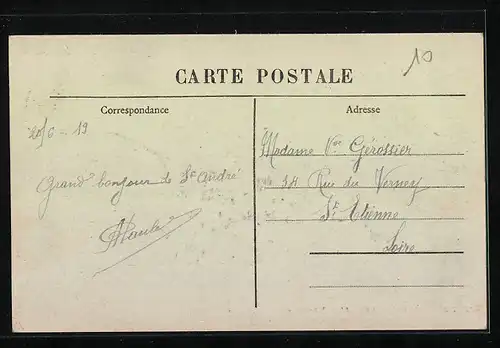 10
CARTE POSTALE
Correspondance
Adresse
20/6 - 19
Grand bonjour de St André
Madame Vve Gérossier
34 Rue du Verney
St Etienne
Loire